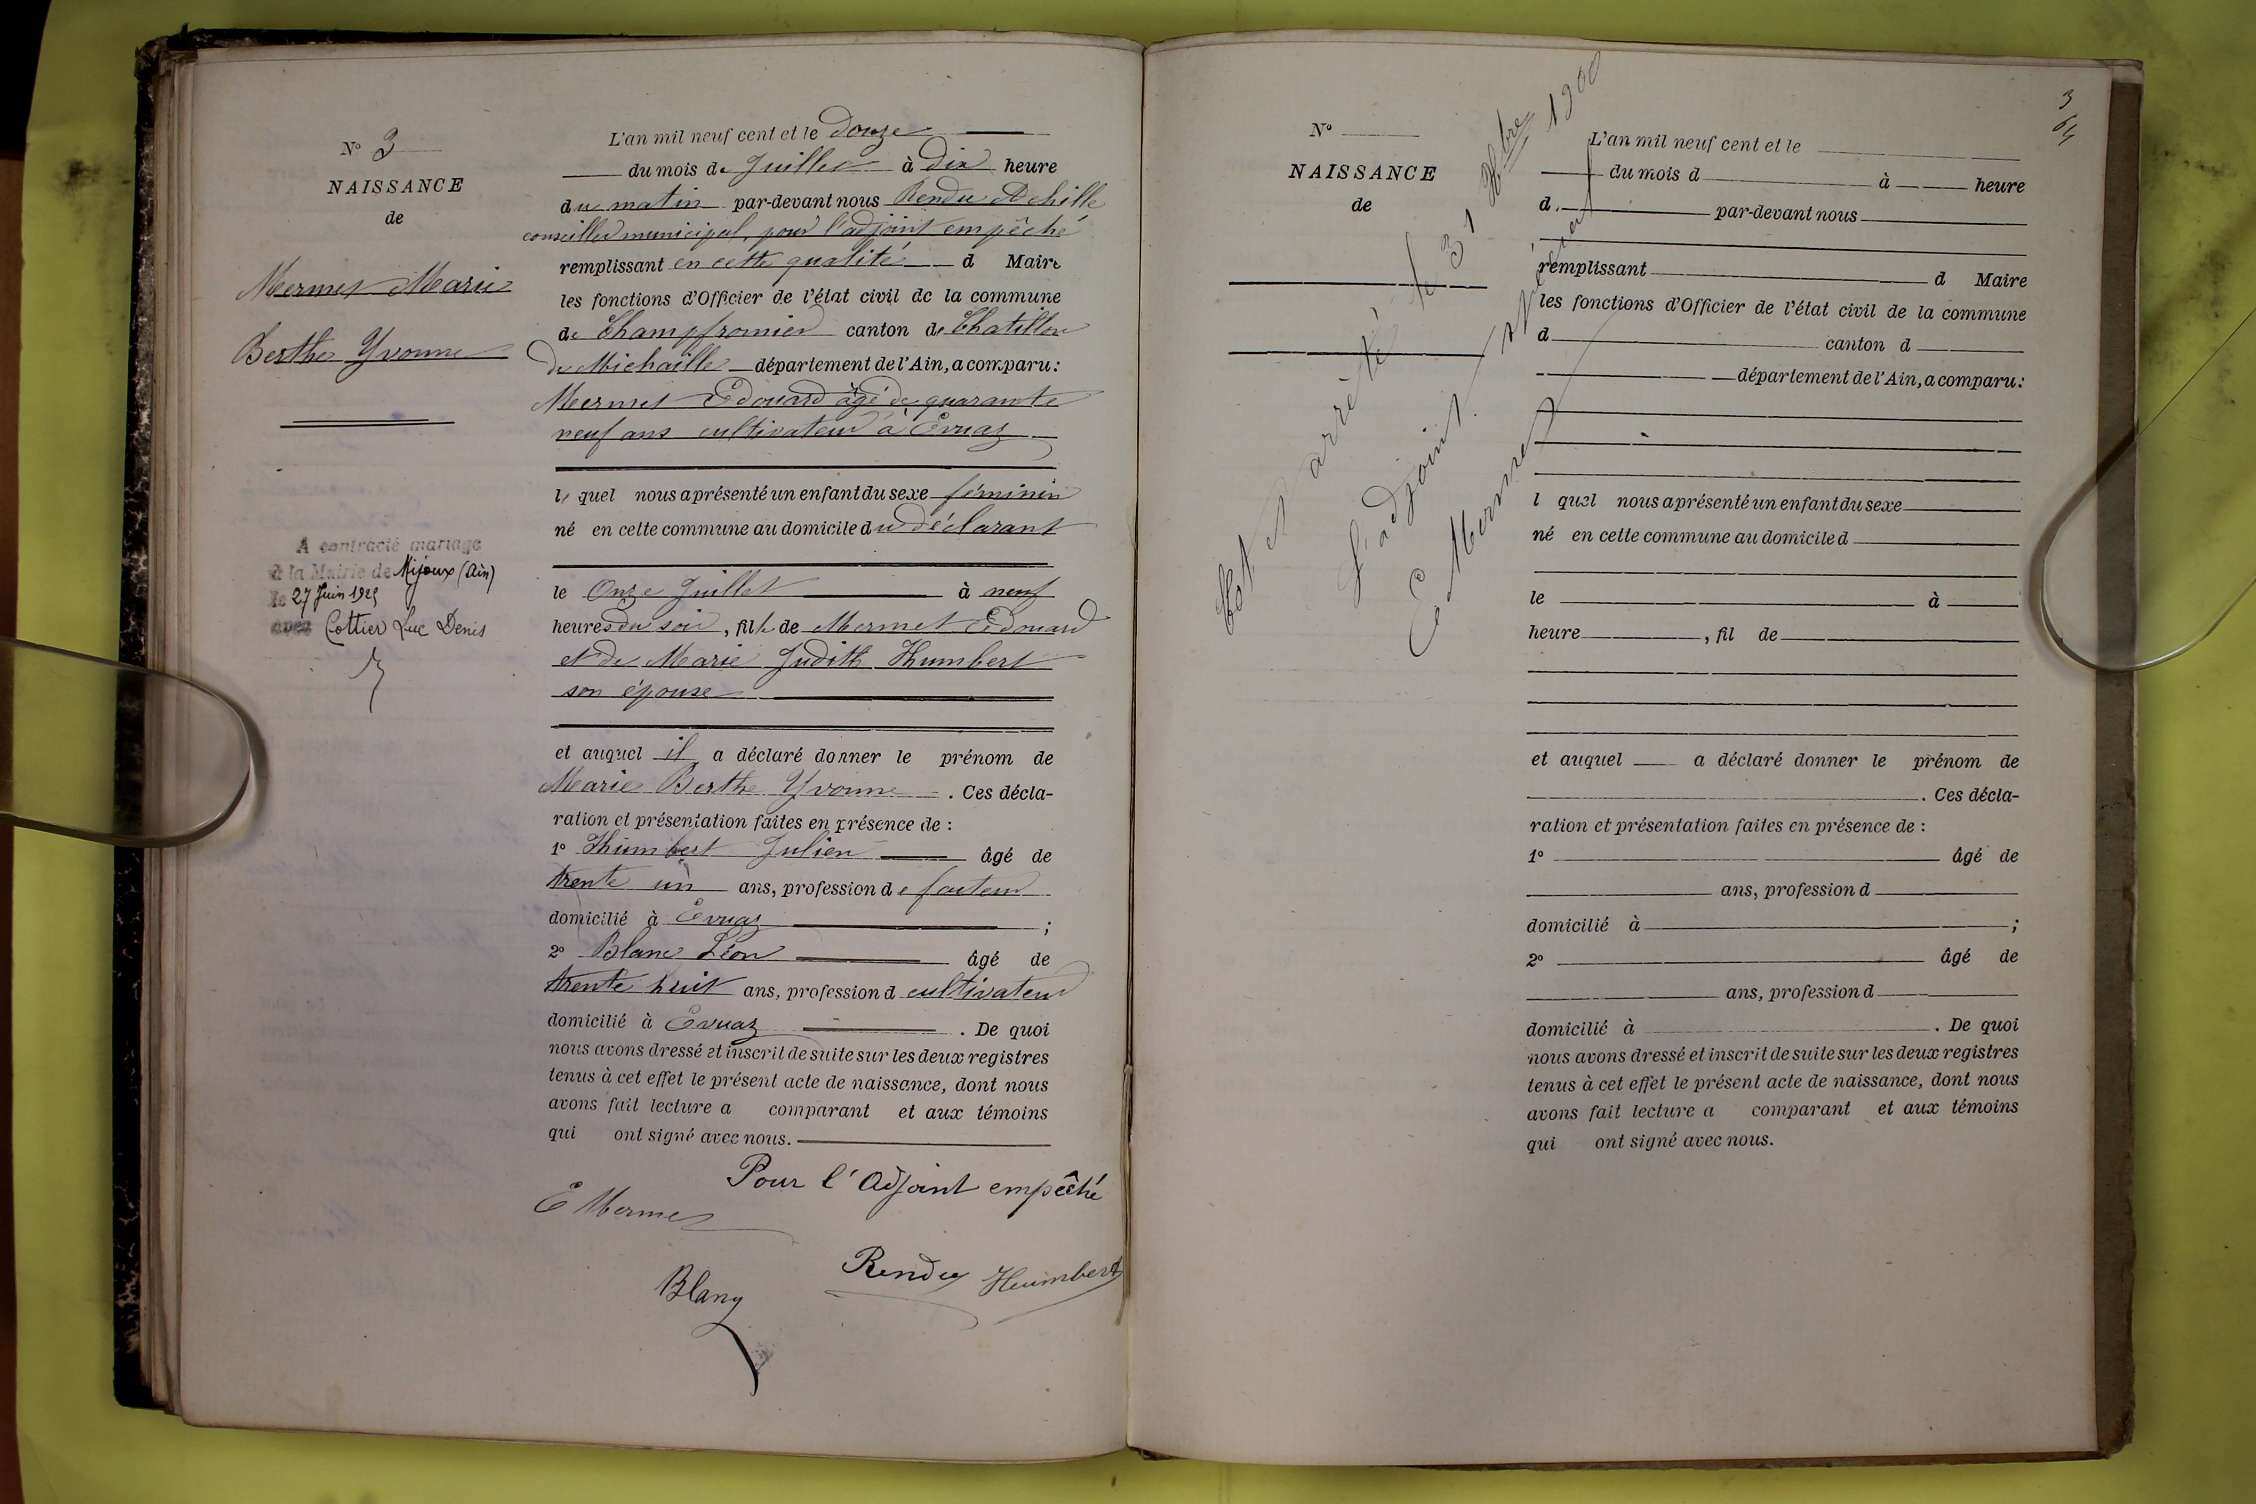 N° 3
NAISSANCE
de
Mermet Marie
Berthe Yvonne
A contracté mariage
à la Mairie de Mijoux (Ain)
le 27 Juin 1925
avec Cottier Luc Denis
L'an mil neuf cent et le douze
du mois de Juillet à dix heure
du matin par-devant nous Rendu Achille
conseiller municipal, pour l'adjoint empêché
remplissant en cette qualité d Maire
les fonctions d'Officier de l'état civil de la commune
de Champfromier canton de Chatillon
de Michaille département de l'Ain, a comparu:
Mermet Edouard âgé de quarante
neuf ans cultivateur à Evuaz
le quel nous a présenté un enfant du sexe féminin
né en cette commune au domicile du déclarant
le Onze Juillet à neuf
heures du soir, fille de Mermet Edouard
et de Marie Judith Humbert
son épouse
et auquel il a déclaré donner le prénom de
Marie Berthe Yvonne. Ces décla-
ration et présentation faites en présence de :
1° Humbert Julien âgé de
trente un ans, profession de facteur
domicilié à Evuaz ;
2° Blanc Léon âgé de
trente huit ans, profession d cultivateur
domicilié à Evuaz . De quoi
nous avons dressé et inscrit de suite sur les deux registres
tenus à cet effet le présent acte de naissance, dont nous
avons fait lecture a comparant et aux témoins
qui ont signé avec nous.
Pour l'Adjoint empêché
E Mermet
Rendu Humbert
Blanc
3
N°
NAISSANCE
de
L'an mil neuf cent et le
du mois d à heure
d par-devant nous
remplissant d Maire
les fonctions d'Officier de l'état civil de la commune
d canton d
département de l'Ain, a comparu:
l quel nous a présenté un enfant du sexe
né en cette commune au domicile d
le à
heure , fil de
et auquel a déclaré donner le prénom de
. Ces décla-
ration et présentation faites en présence de :
1° âgé de
ans, profession d
domicilié à ;
2° âgé de
ans, profession d
domicilié à . De quoi
nous avons dressé et inscrit de suite sur les deux registres
tenus à cet effet le présent acte de naissance, dont nous
avons fait lecture a comparant et aux témoins
qui ont signé avec nous.
Clos et arrêté le 31 Xbre 1900
L'adjoint spécial
E Mermet